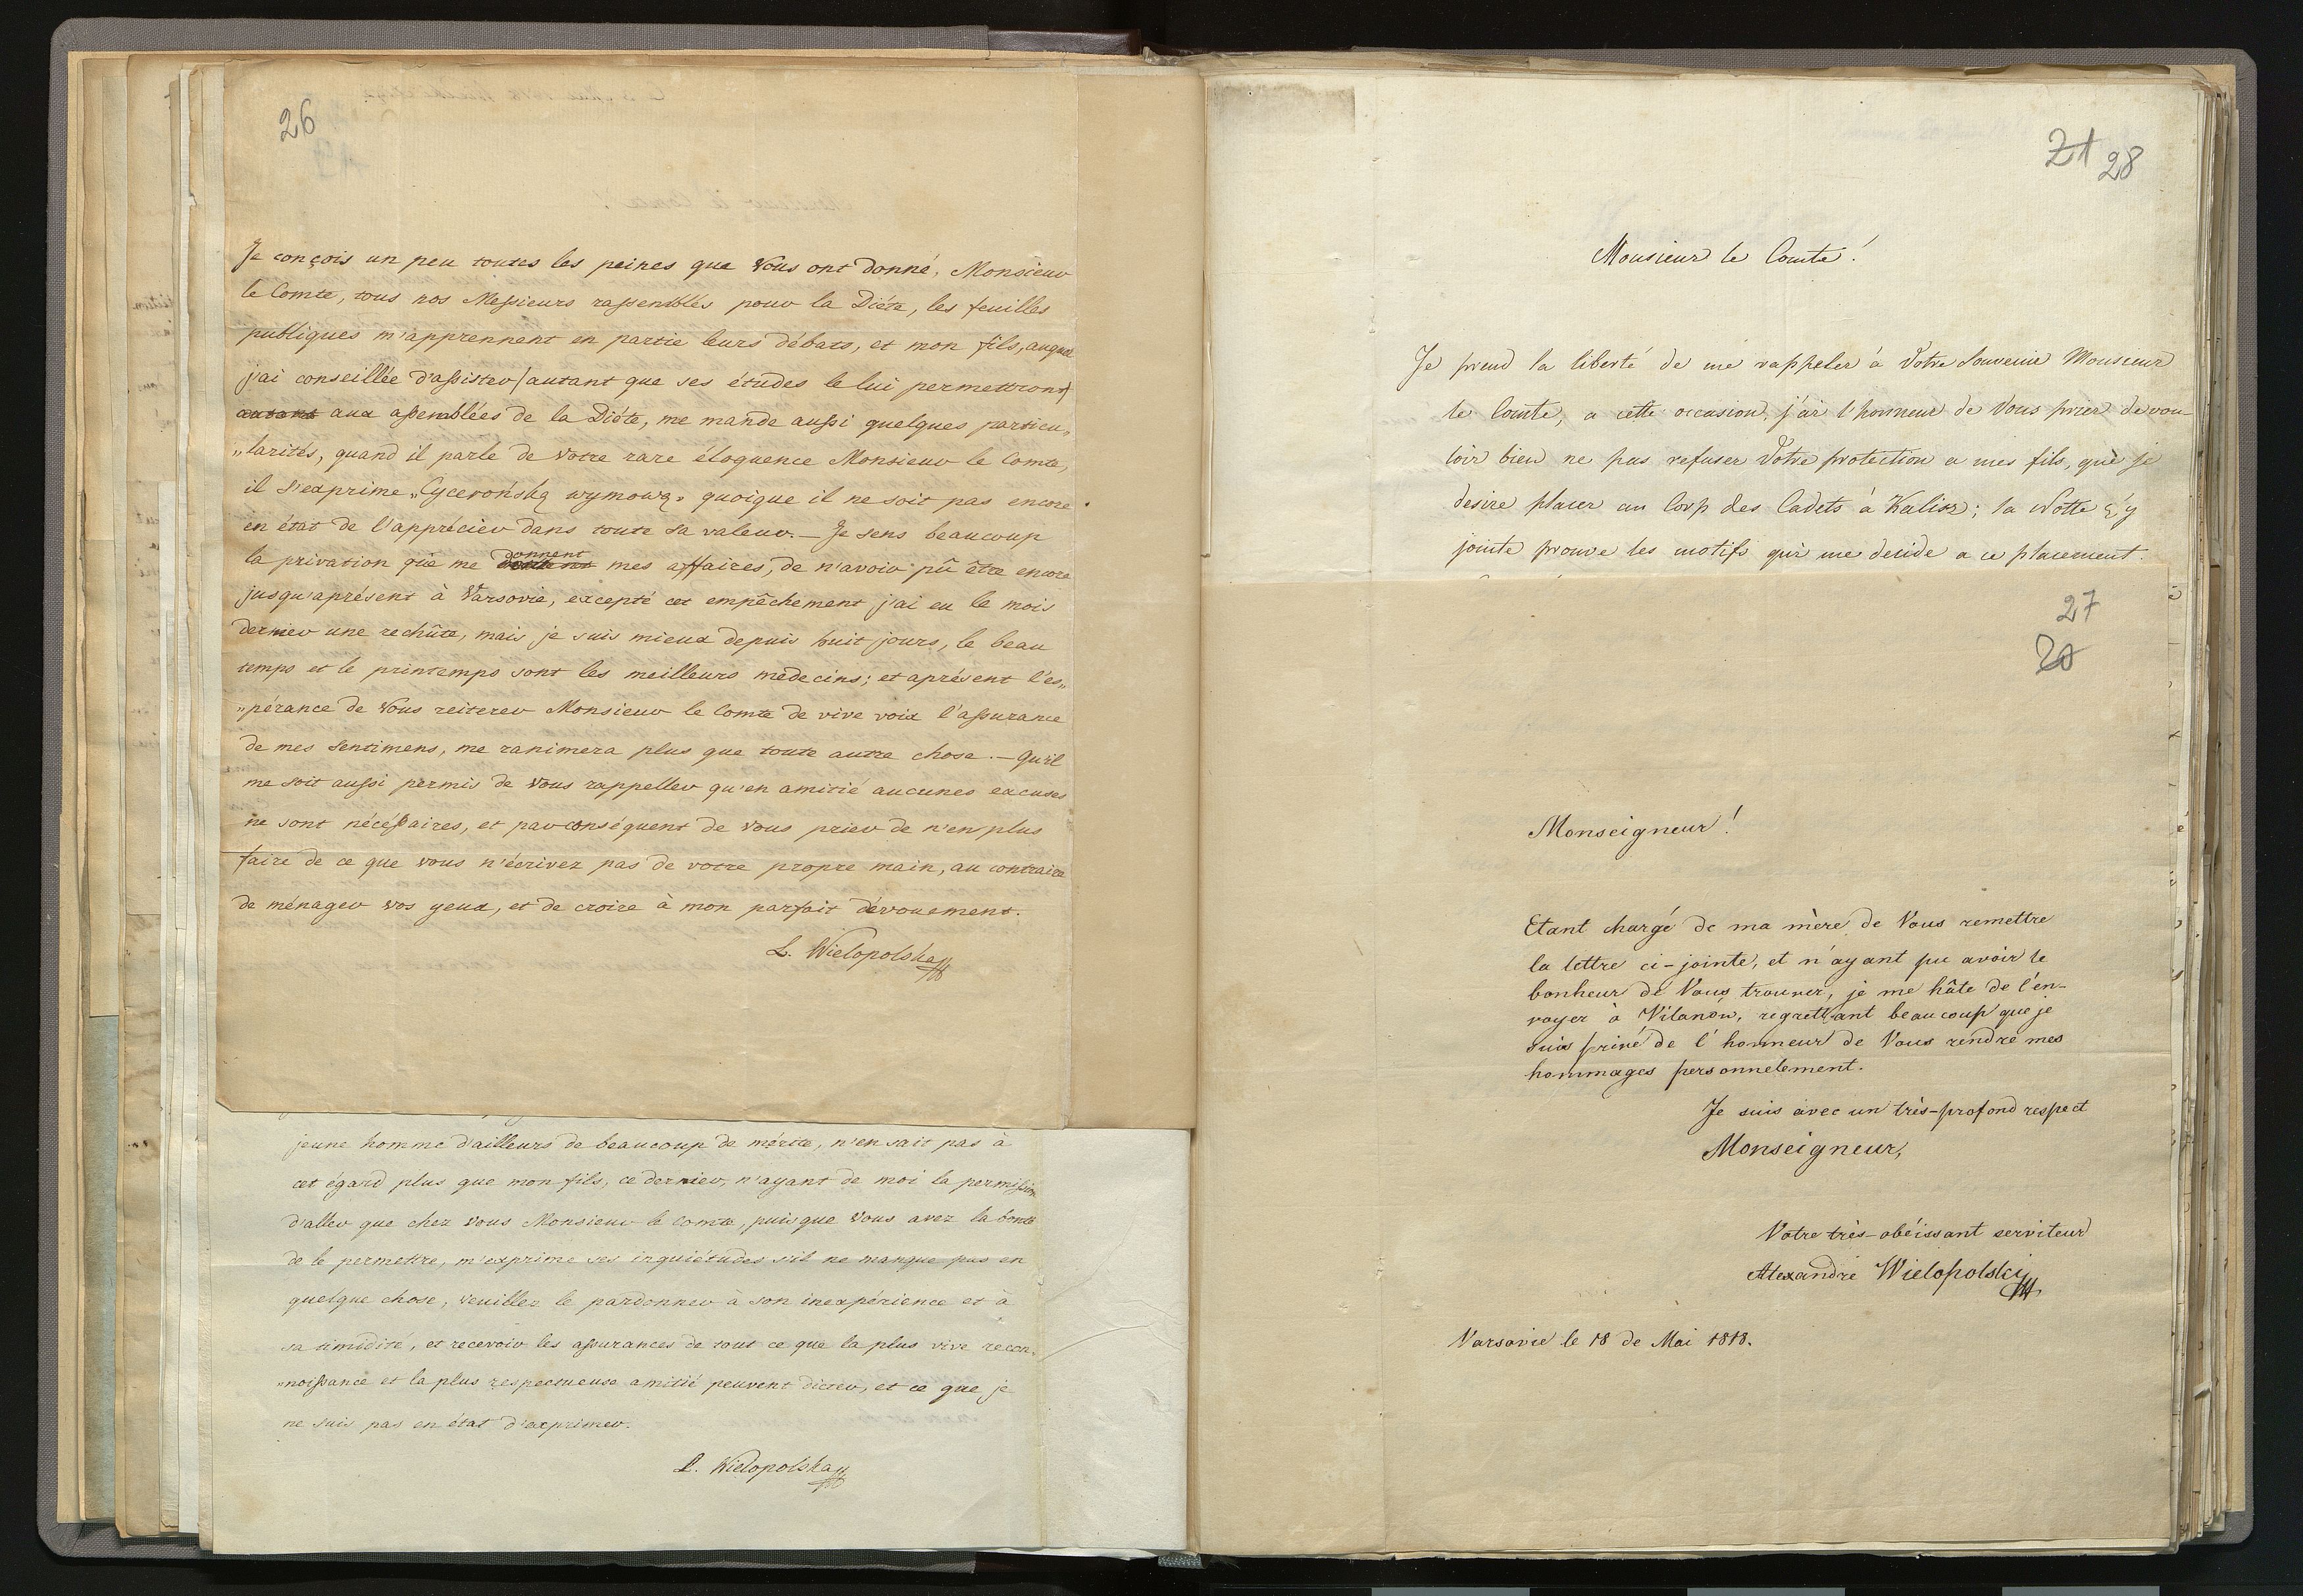 26
Je conçois un peu toutes les peines que Vous ont donné, Monsieur
le Comte, tous nos Messieurs rassemblés pour la Diéte, les feuilles
publiques m'apprennent en partie leurs débats, et mon fils, auquel
j'ai conseillée d'assister/autant que ses études le lui permettront/
autant aux assemblées de la Diéte, me mande aussi quelques particu„
„larités, quand il parle de Votre rare éloquence Monsieur le Comte,
il s'exprime „Cycerońską wymową„ quoique il ne soit pas encore
en état de l'apprécier dans toute sa valeur. — Je sens beaucoup
la privation que me donnent mes affaires, de n'avoir pû être encore
jusqu'aprésent à Varsovie, excepté cet empêchement j'ai eu le mois
dernier une rechûte, mais je suis mieux depuis huit jours, le beau
temps et le printemps sont les meilleurs médecins; et aprésent l'es„
„pérance de Vous reiterer Monsieur le Comte de vive voix l'assurance
de mes sentimens, me ranimera plus que toute autre chose. — Qu'il
me soit aussi permis de Vous rappeller qu'en amitié aucunes excuses
ne sont nécéssaires, et par conséquent de Vous prier de n'en plus
faire de ce que vous n'écrivez pas de votre propre main, au contraire
de ménager vos yeux, et de croire à mon parfait dévouement.
L. Wielopolska
jeune homme d'ailleurs de beaucoup de mérite, n'en sait pas à
cet égard plus que mon fils, ce dernier, n'ayant de moi la permission
d'aller que chez Vous Monsieur le Comte, puisque Vous avez la bonté
de le permettre, m'exprime ses inquiétudes s'il ne manque pas en
quelque chose, veuillez le pardonner à son inexpérience et à
sa timidité, et recevoir les assurances de tout ce que la plus vive recon„
„noissance et la plus respectueuse amitié peuvent dicter, et ce que je
ne suis pas en état d'exprimer.
L. Wielopolska
21 28
Monsieur le Comte!
Je prend la liberté de me rappeler à Votre Souvenir Monsieur
le Comte, a cette occasion, j'ai l'honneur de Vous prier de vou-
loir bien ne pas refuser Votre protection a mes fils, que je
desire placer au Corp des Cadets à Kalisz; la Notte
jointe prouve les motifs qui me decide a ce placement.
27
20
Monseigneur!
Etant chargé de ma mère de Vous remettre
la lettre ci-jointe, et n'ayant pu avoir le
bonheur de Vous trouver, je me hâte de l'en-
voyer à Vilanow, regrettant beaucoup que je
suis privé de l'honneur de Vous rendre mes
hommages personnelement.
Je suis avec un très-profond respect
Monseigneur,
Votre très-obéissant serviteur
Alexandre Wielopolski
Varsovie le 18 de Mai 1818.